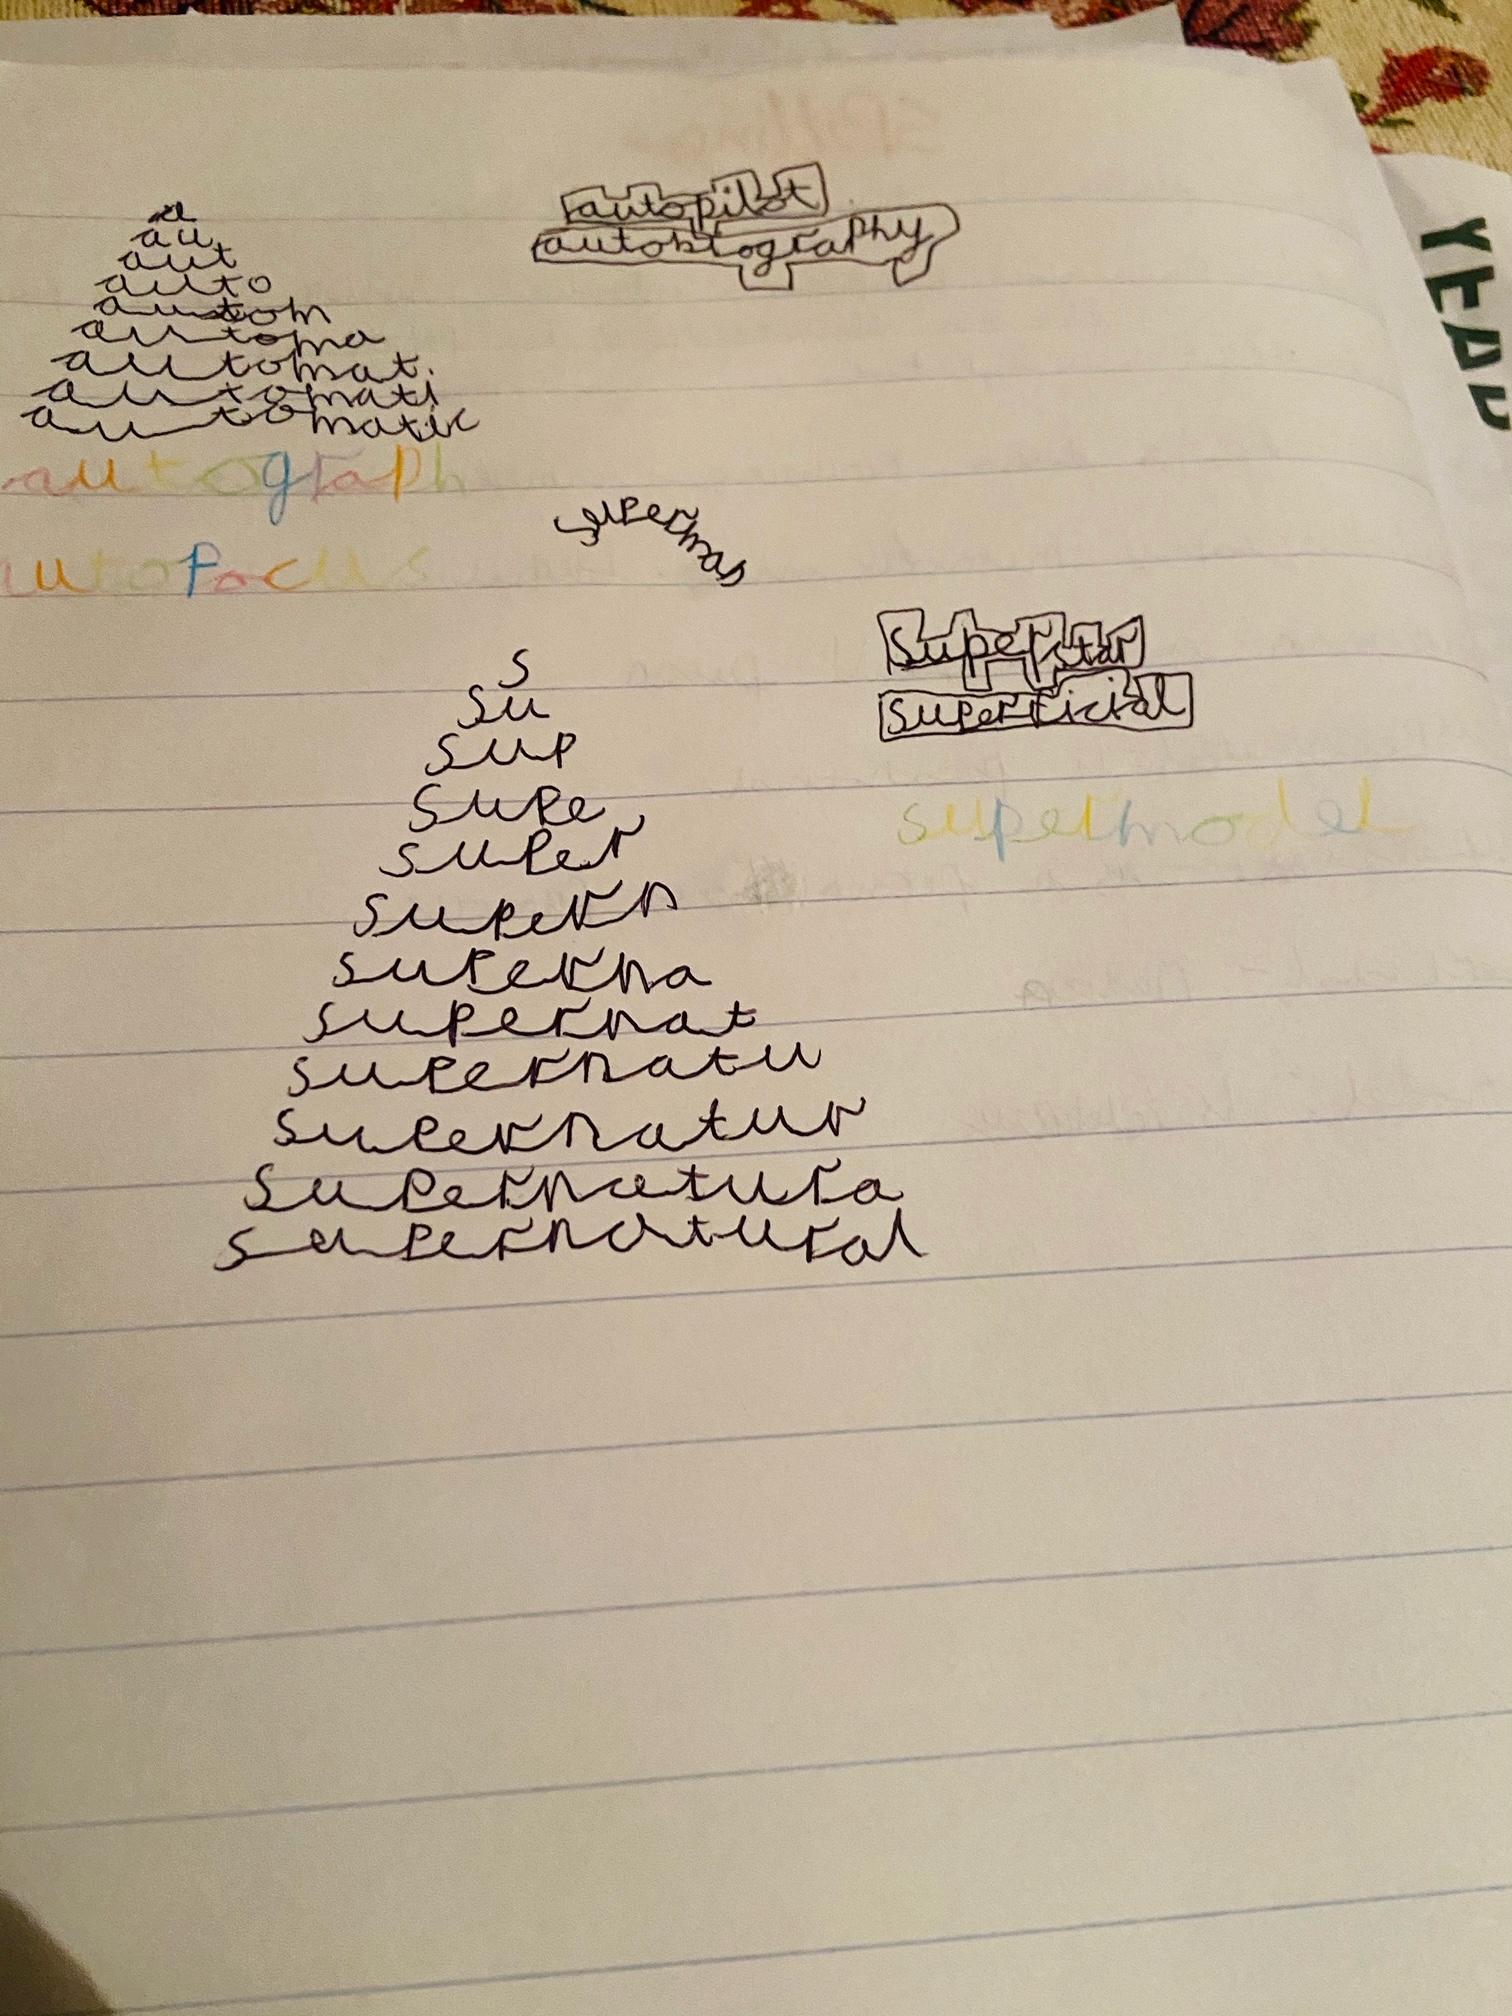 a
au
aut
auto
autom
automa
automat
automati
automatic
autopilot
autobiography
autograph
autofocus
superman
s
su
sup
supe
super
supern
superna
supernat
supernatu
supernatur
supernatura
supernatural
superstar
superficial
supermodel
YEAR